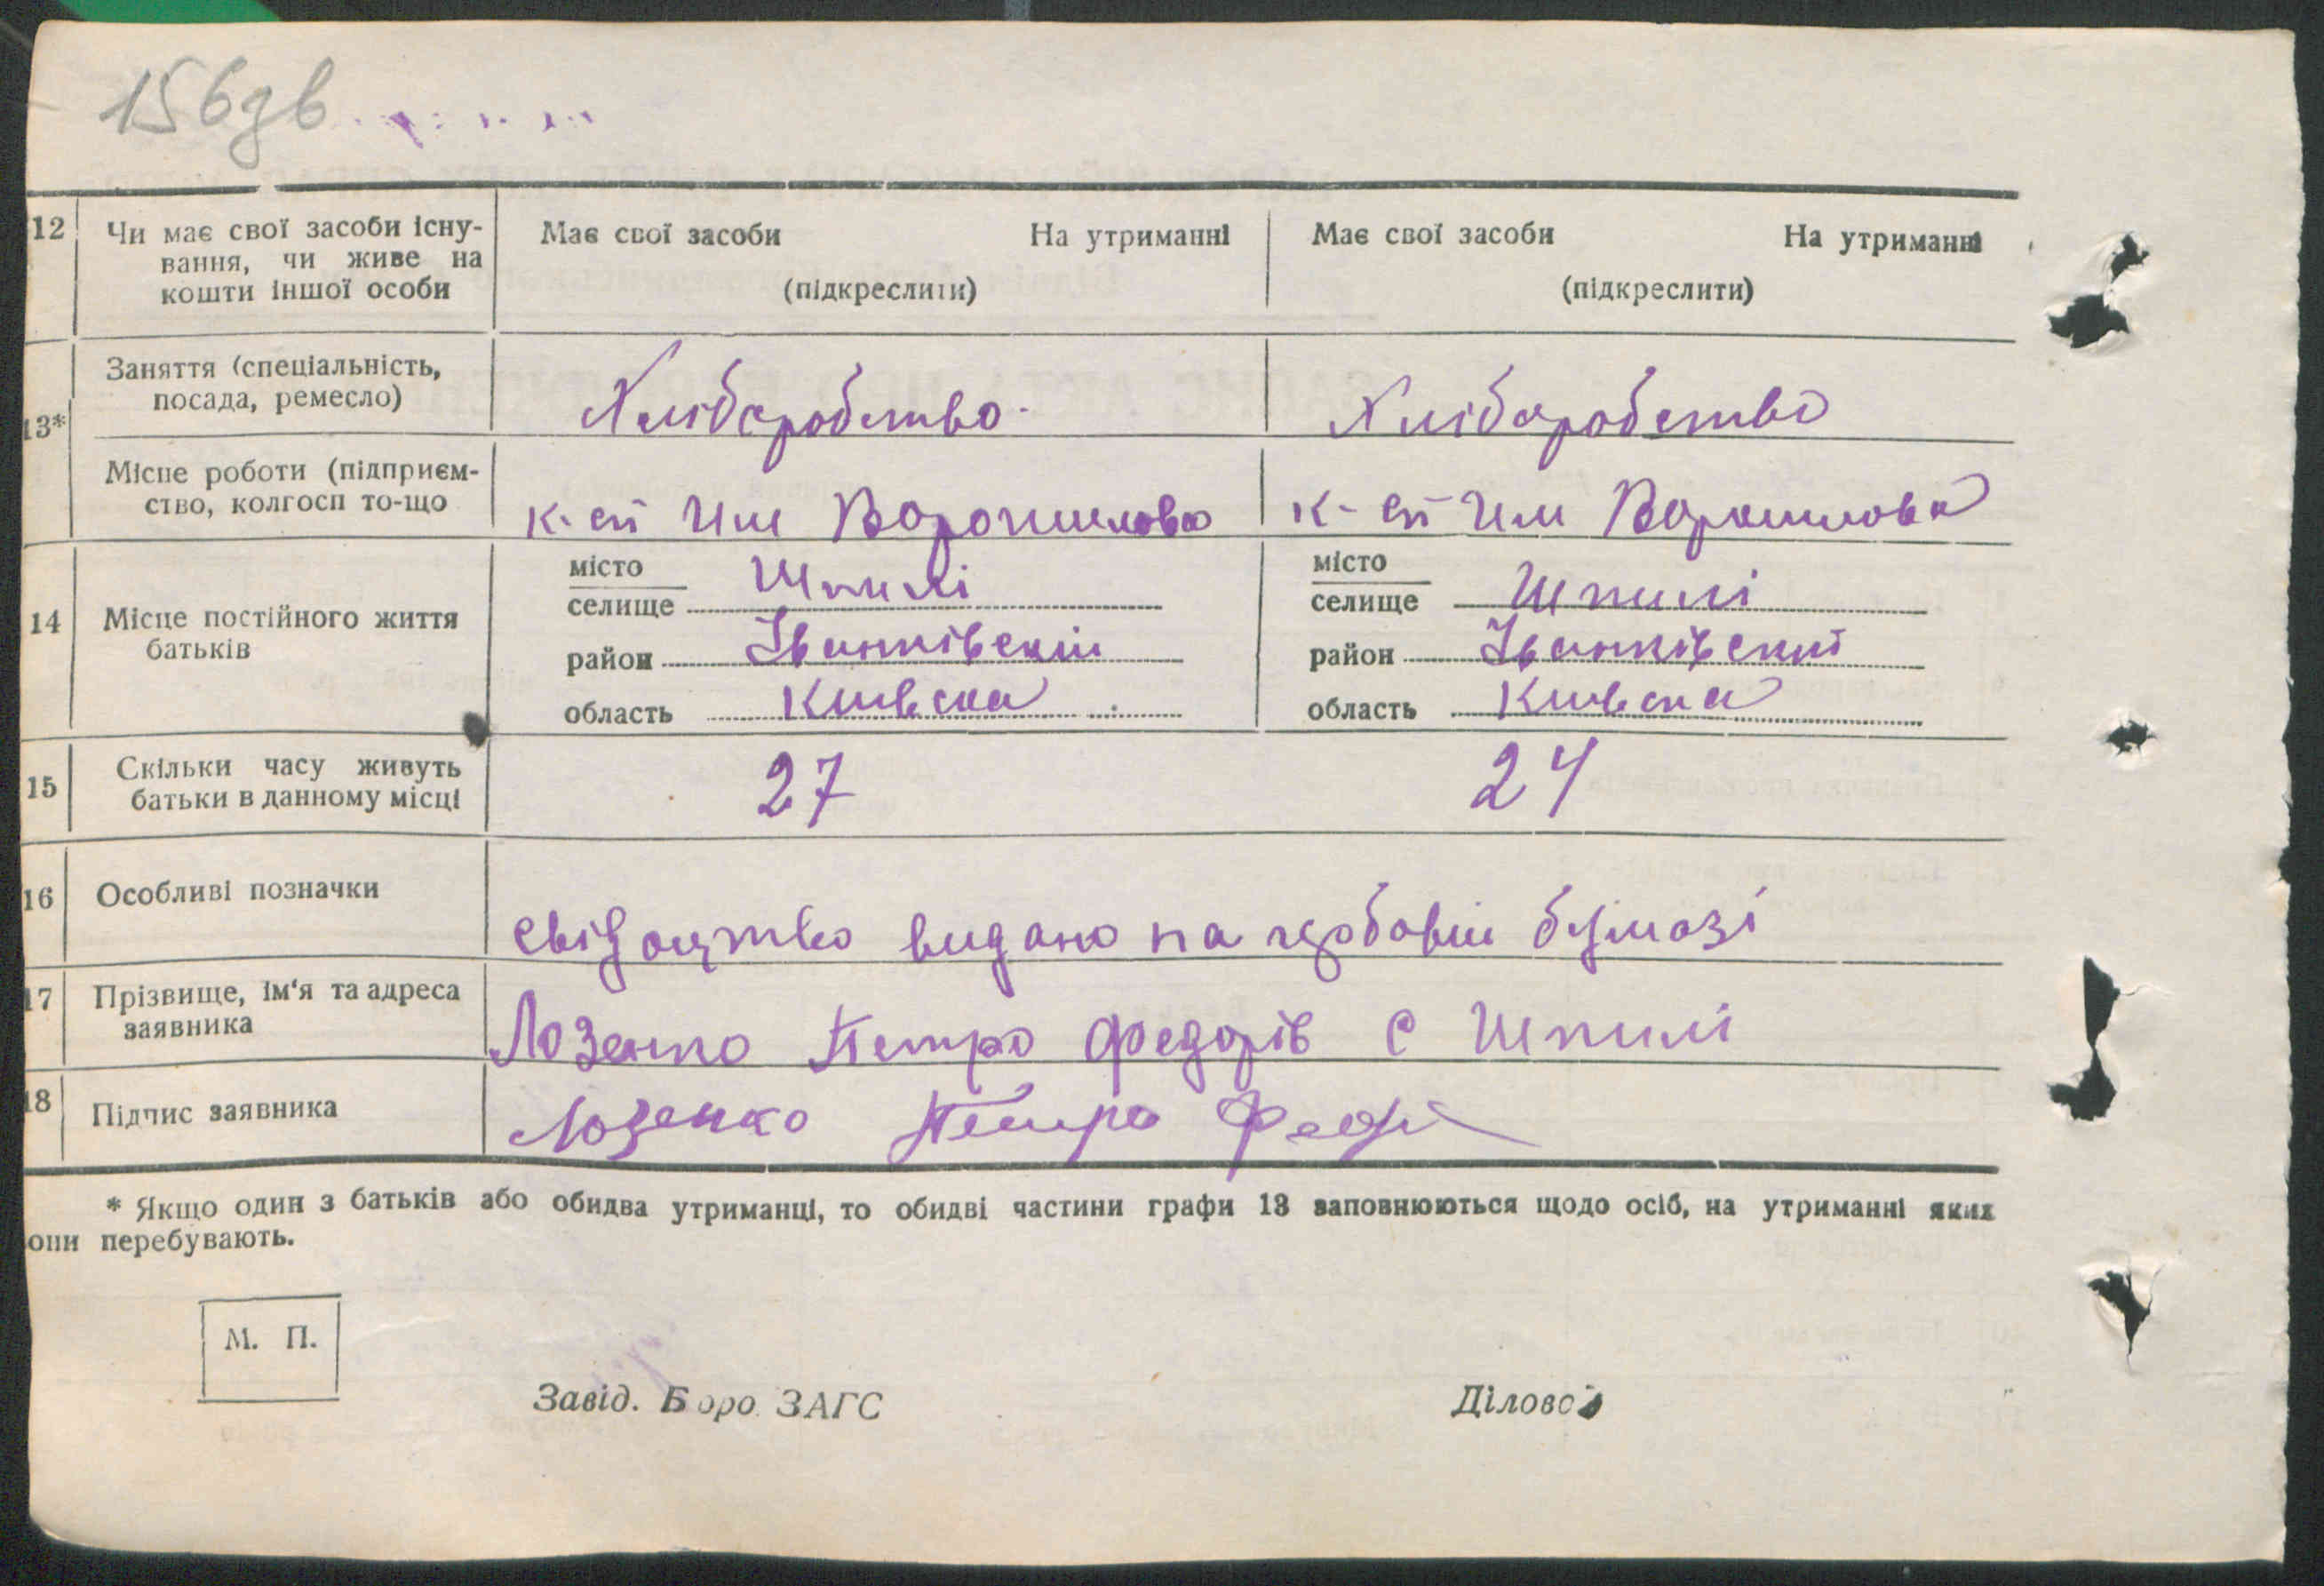 156зв
12 Чи має свої засоби існу-
вання, чи живе на
кошти іншої особи
Має свої засоби На утриманні
(підкреслити)
Має свої засоби На утриманні
(підкреслити)
13* Заняття (спеціальність,
посада, ремесло)
Хлібаробство.
Хлібаробство
Місце роботи (підприєм-
ство, колгосп то-що
к-сп Им Ворошилова
к-сп Им Ворошилова
14 Місце постійного життя
батьків
місто
селище Шпилі
район Іванківский
область Киівска
місто
селище Шпилі
район Іванківский
область Киівска
15 Скільки часу живуть
батьки в данному місці
27
24
16 Особливі позначки
свідоцтво видано на гербовій бумазі
17 Прізвище, ім'я та адреса
заявника
Лозенко Петро Федорів с Шпилі
18 Підпис заявника
Лозенко Петро
* Якщо один з батьків або обидва утриманці, то обидві частини графи 13 заповнюються щодо осіб, на утриманні яких
они перебувають.
М. П.
Завід. Бюро ЗАГС
Діловод